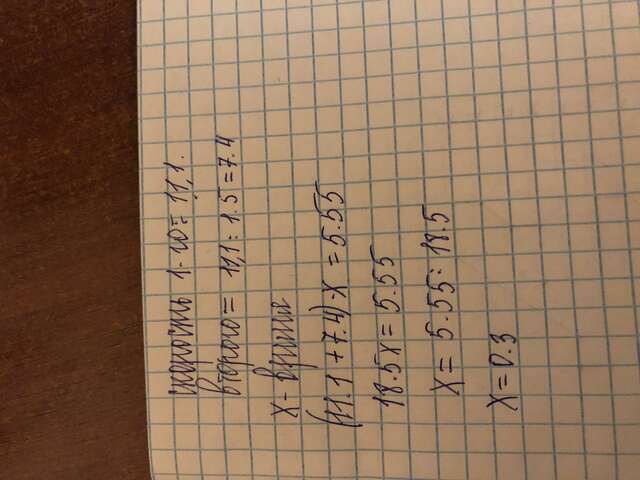 скорость 1-го = 11,1.
второго = 11,1 : 1.5 = 7.4
X - время
(11.1 + 7.4) · X = 5.55
18.5X = 5.55
X = 5.55 : 18.5
X = 0.3